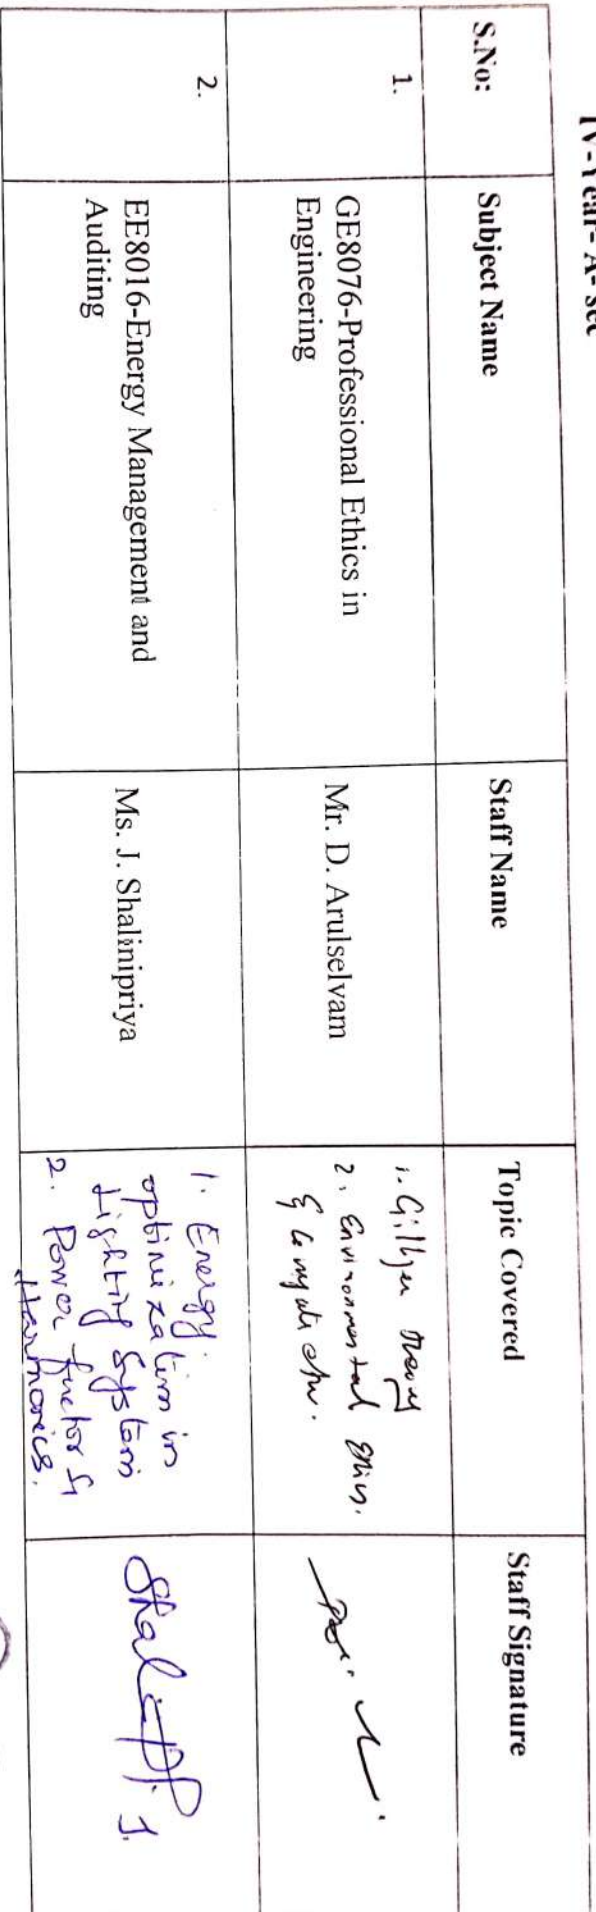 IV-Year- A- sec
S.No:
Subject Name
Staff Name
Topic Covered
Staff Signature
1.
GE8076-Professional Ethics in
Engineering
Mr. D. Arulselvam
1. Theory
2. Environmental Ethics.
&
2.
EE8016-Energy Management and
Auditing
Ms. J. Shalinipriya
1. Energy
optimization in
Lighting System
2. Power factor &
Harmonics.